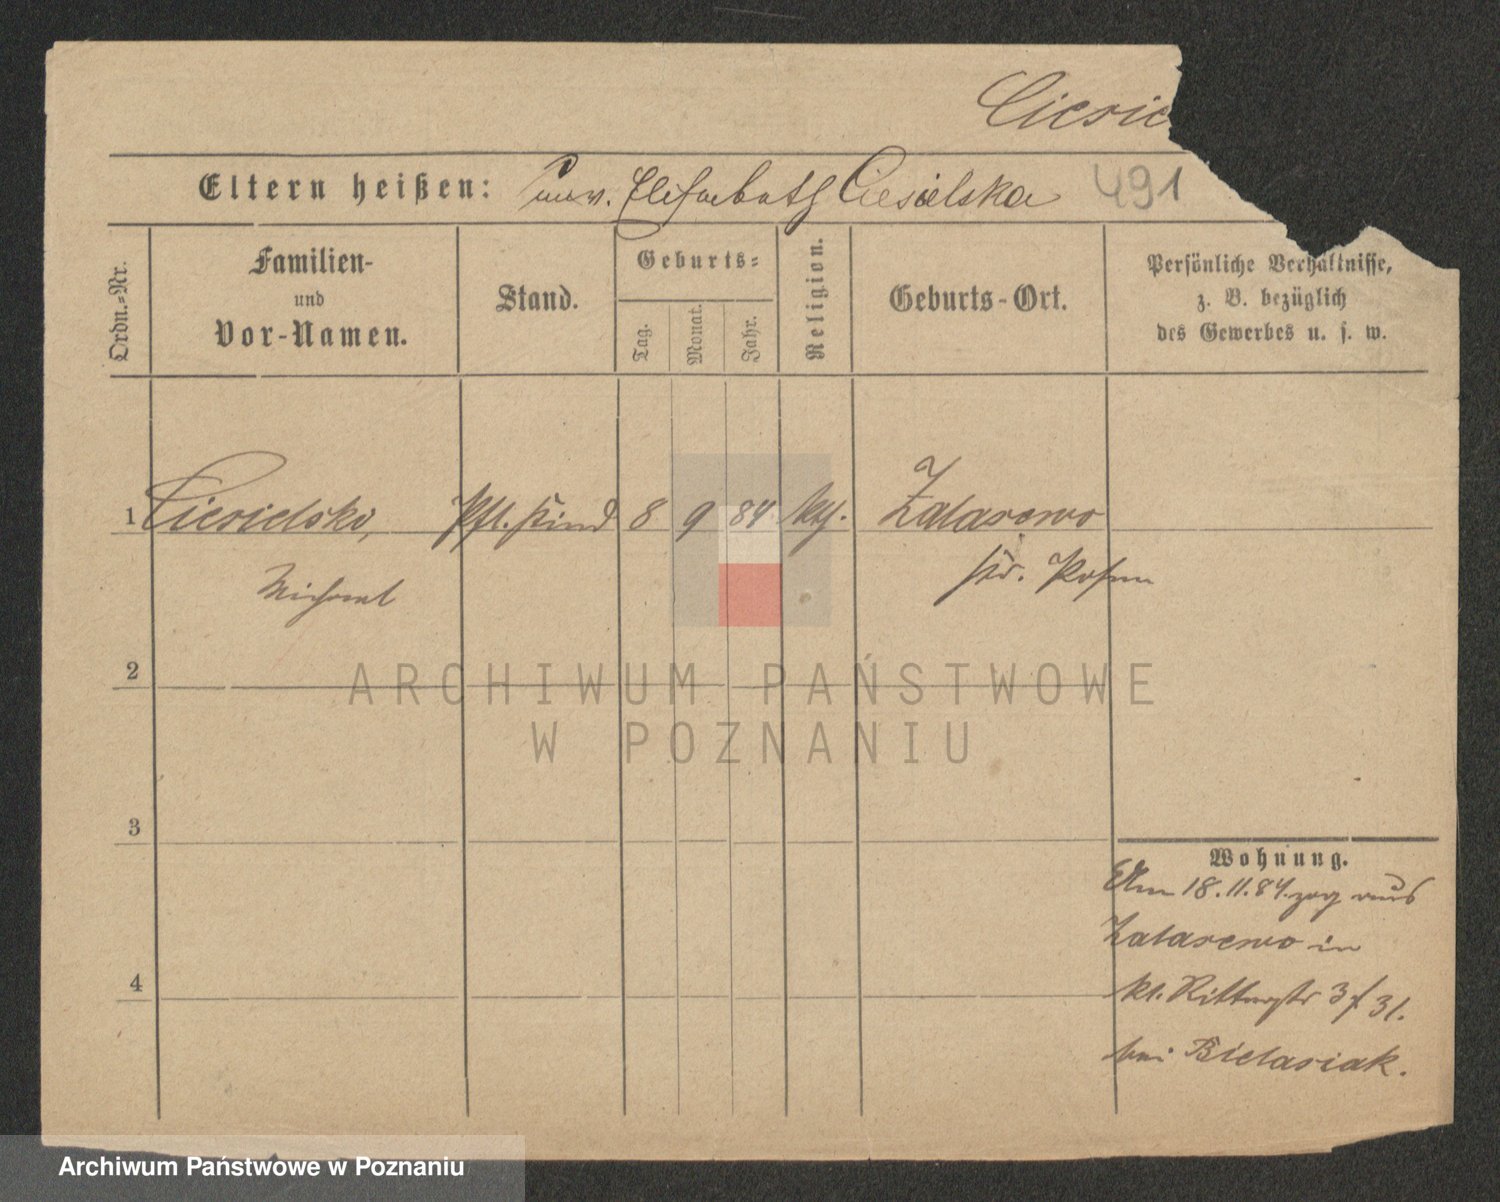 Ciesie
Eltern heißen: unv. Elisabeth Ciesielska 491
Ordn.=Nr.
Familien- und Vor-Namen.
Stand.
Geburts=
Tag.
Monat.
Jahr.
Religion.
Geburts-Ort.
Persönliche Verhältnisse,
z. B. bezüglich
des Gewerbes u. s. w.
1 Ciesielski, Pfl. Kind 8 9 84 kth. Zalasewo
Michael Kr. Posen
2
ARCHIWUM PAŃSTWOWE
W POZNANIU
3
Wohnung.
Am 18.11.84. zog aus
Zalasewo in
4
kl. Ritterstr 3 f 31.
bei Bielasiak.
Archiwum Państwowe w Poznaniu